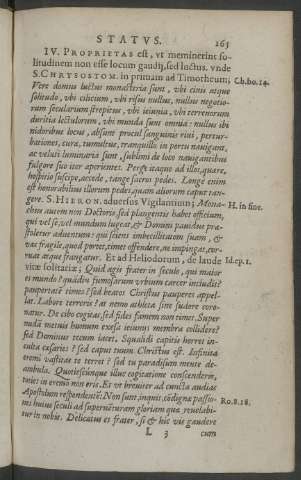 STATVS. 165
IV. PROPRIETAS est, vt meminerint so-
litudinem non esse locum gaudij, sed luctus. vnde
S. CHRYSOSTOM. in primam ad Timotheum; Ch.ho.14.
Vere domus luctus monasteria sunt, vbi cinis atque
solitudo, vbi cilicium, vbi risus nullus, nullus negotio-
rum secularium strepitus, vbi ieiunia, vbi terrenorum
duritia lectulorum, vbi munda sunt omnia: nullus ibi
nidoribus locus, absunt procul sanguinis riui, pertur-
bationes, cura, tumultus, tranquillo in portu nauigant,
ac veluti luminaria sunt, sublimi de loco nauigantibus
fulgore suo iter aperientes. Perge itaque ad illos, quare,
hospitio suscipe, accede, tange sacros pedes. Longe enim
est honorabilius illorum pedes, quam aliorum caput tan-
gere. S. HIERON. aduersus Vigilantium; Mona- H. in fine.
chus autem non Doctoris, sed plangentis habet officium,
qui vel se, vel mundum lugeat, & Domini pauidus præ-
stoletur aduentum: qui sciens imbecillitatem suam, &
vas fragile, quod portet, timet offendere, ne impingat, cor-
ruat atque frangatur. Et ad Heliodorum, de laude Id.ep.1.
vitæ solitariæ; Quid agis frater in seculo, qui maior
es mundo? quàdiu fumosarum vrbium carcer includit?
paupertatē times? sed beatos Christus pauperes appel-
lat. Labore terreris? at nemo athleta sine sudore coro-
natur. De cibo cogitas? sed fides famem non timet. Super
nudā metuis humum exesa ieiunijs membra collidere?
sed Dominus tecum iacet. Squalidi capitis horret in-
culta cæsaries? sed caput tuum Christus est. Infinita
eremi vastitas te terret? sed tu paradisum mente de-
ambula. Quotiescunque illuc cogitatione conscenderis,
toties in eremo non eris. Et vt breuiter ad cuncta audias
Apostolum respondentē: Non sunt inquit, cōdignæ passio- Ro.8.18.
nes huius seculi ad superuēturam gloriam quæ reuelabi-
tur in nobis. Delicatus es frater, si & hic vis gaudere
L 3 cum